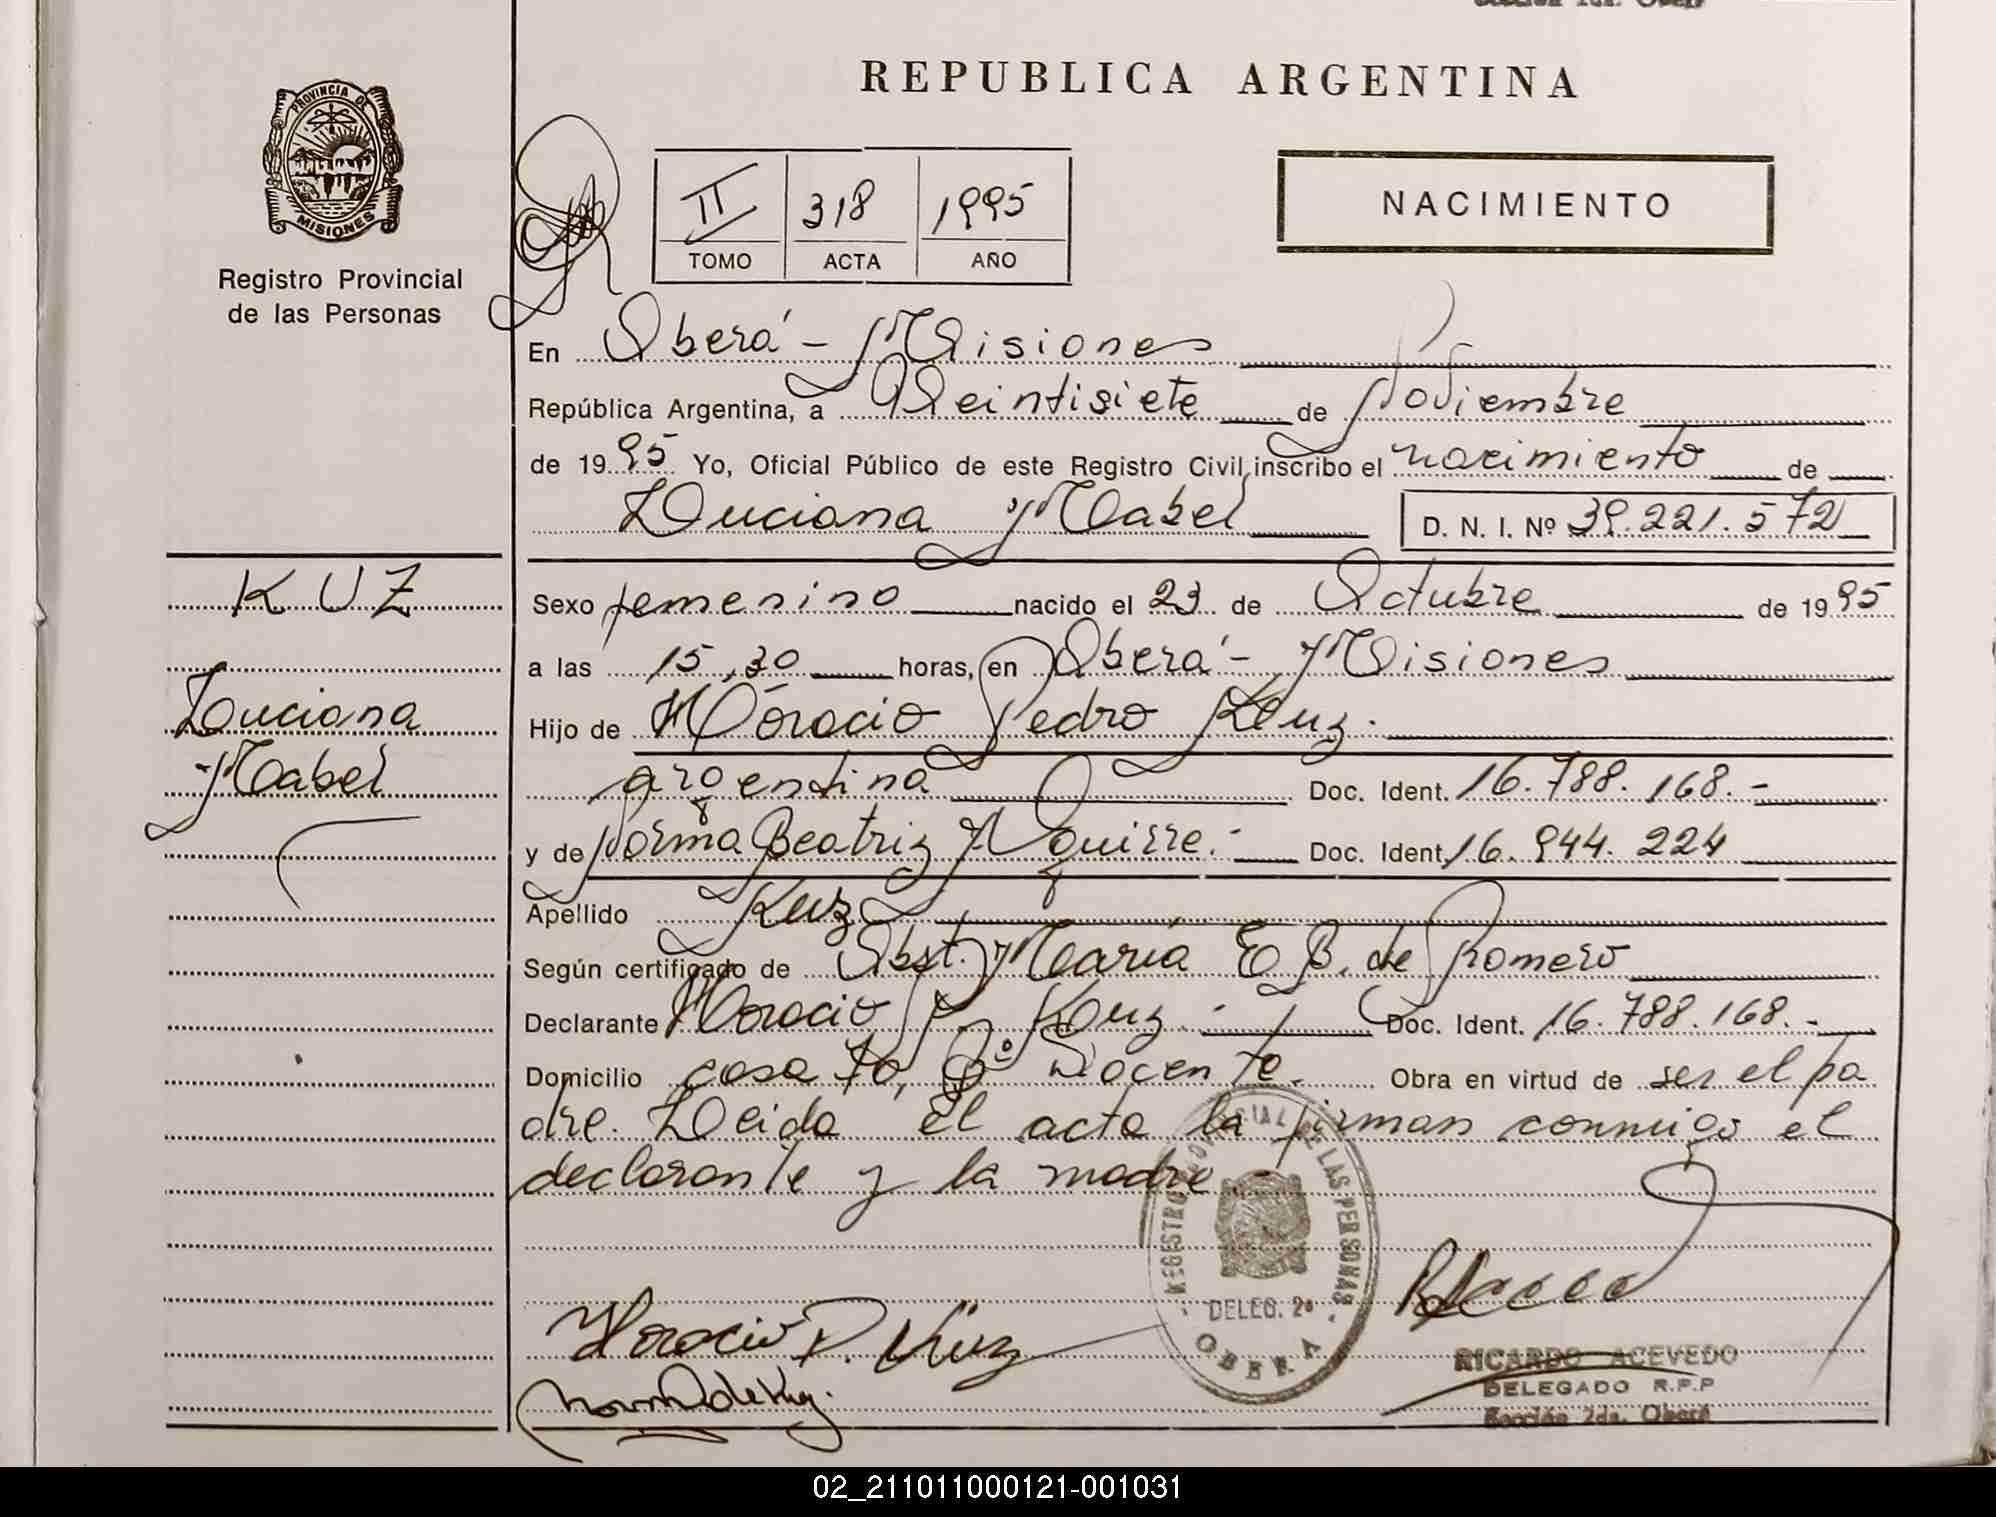 REPUBLICA ARGENTINA
PROVINCIA DE MISIONES
Registro Provincial
de las Personas
II 318 1995
TOMO ACTA AÑO
NACIMIENTO
En Oberá - Misiones
República Argentina, a Veintisiete de Noviembre
de 1995 Yo, Oficial Público de este Registro Civil, inscribo el nacimiento de
Luciana Mabel D. N. I. Nº 39.221.572
KUZ
Luciana
Mabel
Sexo femenino nacido el 23 de Octubre de 1995
a las 15,30 horas, en Oberá - Misiones
Hijo de Horacio Pedro Kuz.
argentina Doc. Ident. 16.788.168.-
y de Norma Beatriz Aguirre.- Doc. Ident. 16.944.224
Apellido Kuz
Según certificado de Obst. María E B. de Romero
Declarante Horacio P. Kuz.- Doc. Ident. 16.788.168.-
Domicilio casa 70, Bº Docente. Obra en virtud de ser el pa
dre. Leida el acta la firman conmigo el
declarante y la madre.-
REGISTRO PROVINCIAL DE LAS PERSONAS
DELEG. 2ª
OBERA
Horacio P. Kuz
RICARDO ACEVEDO
DELEGADO R.P.P
Sección 2da. Oberá
02_211011000121-001031